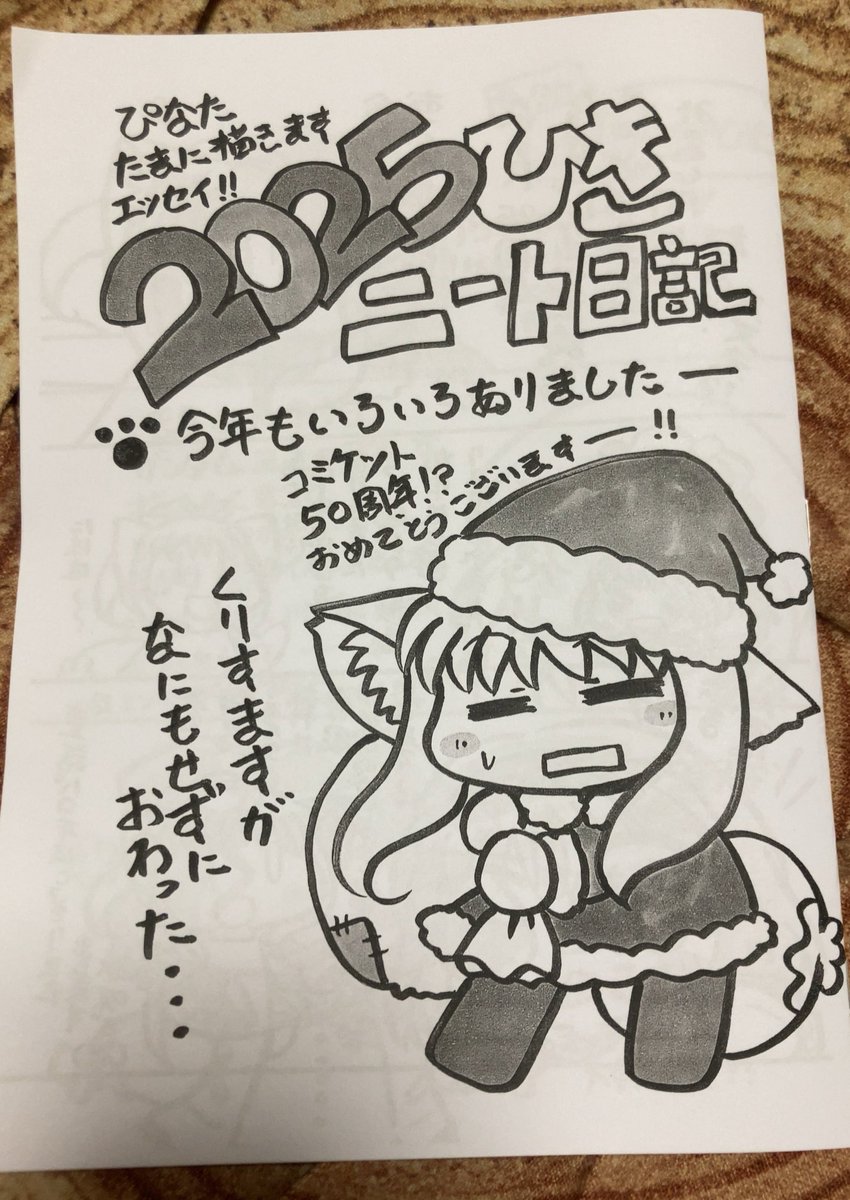 ぴなた
たまに描きます
エッセイ!!
2025ひき
ニート日記
今年もいろいろありましたー
コミケット
50周年!?
おめでとうございますー!!
くりすますが
なにもせずに
おわった・・・